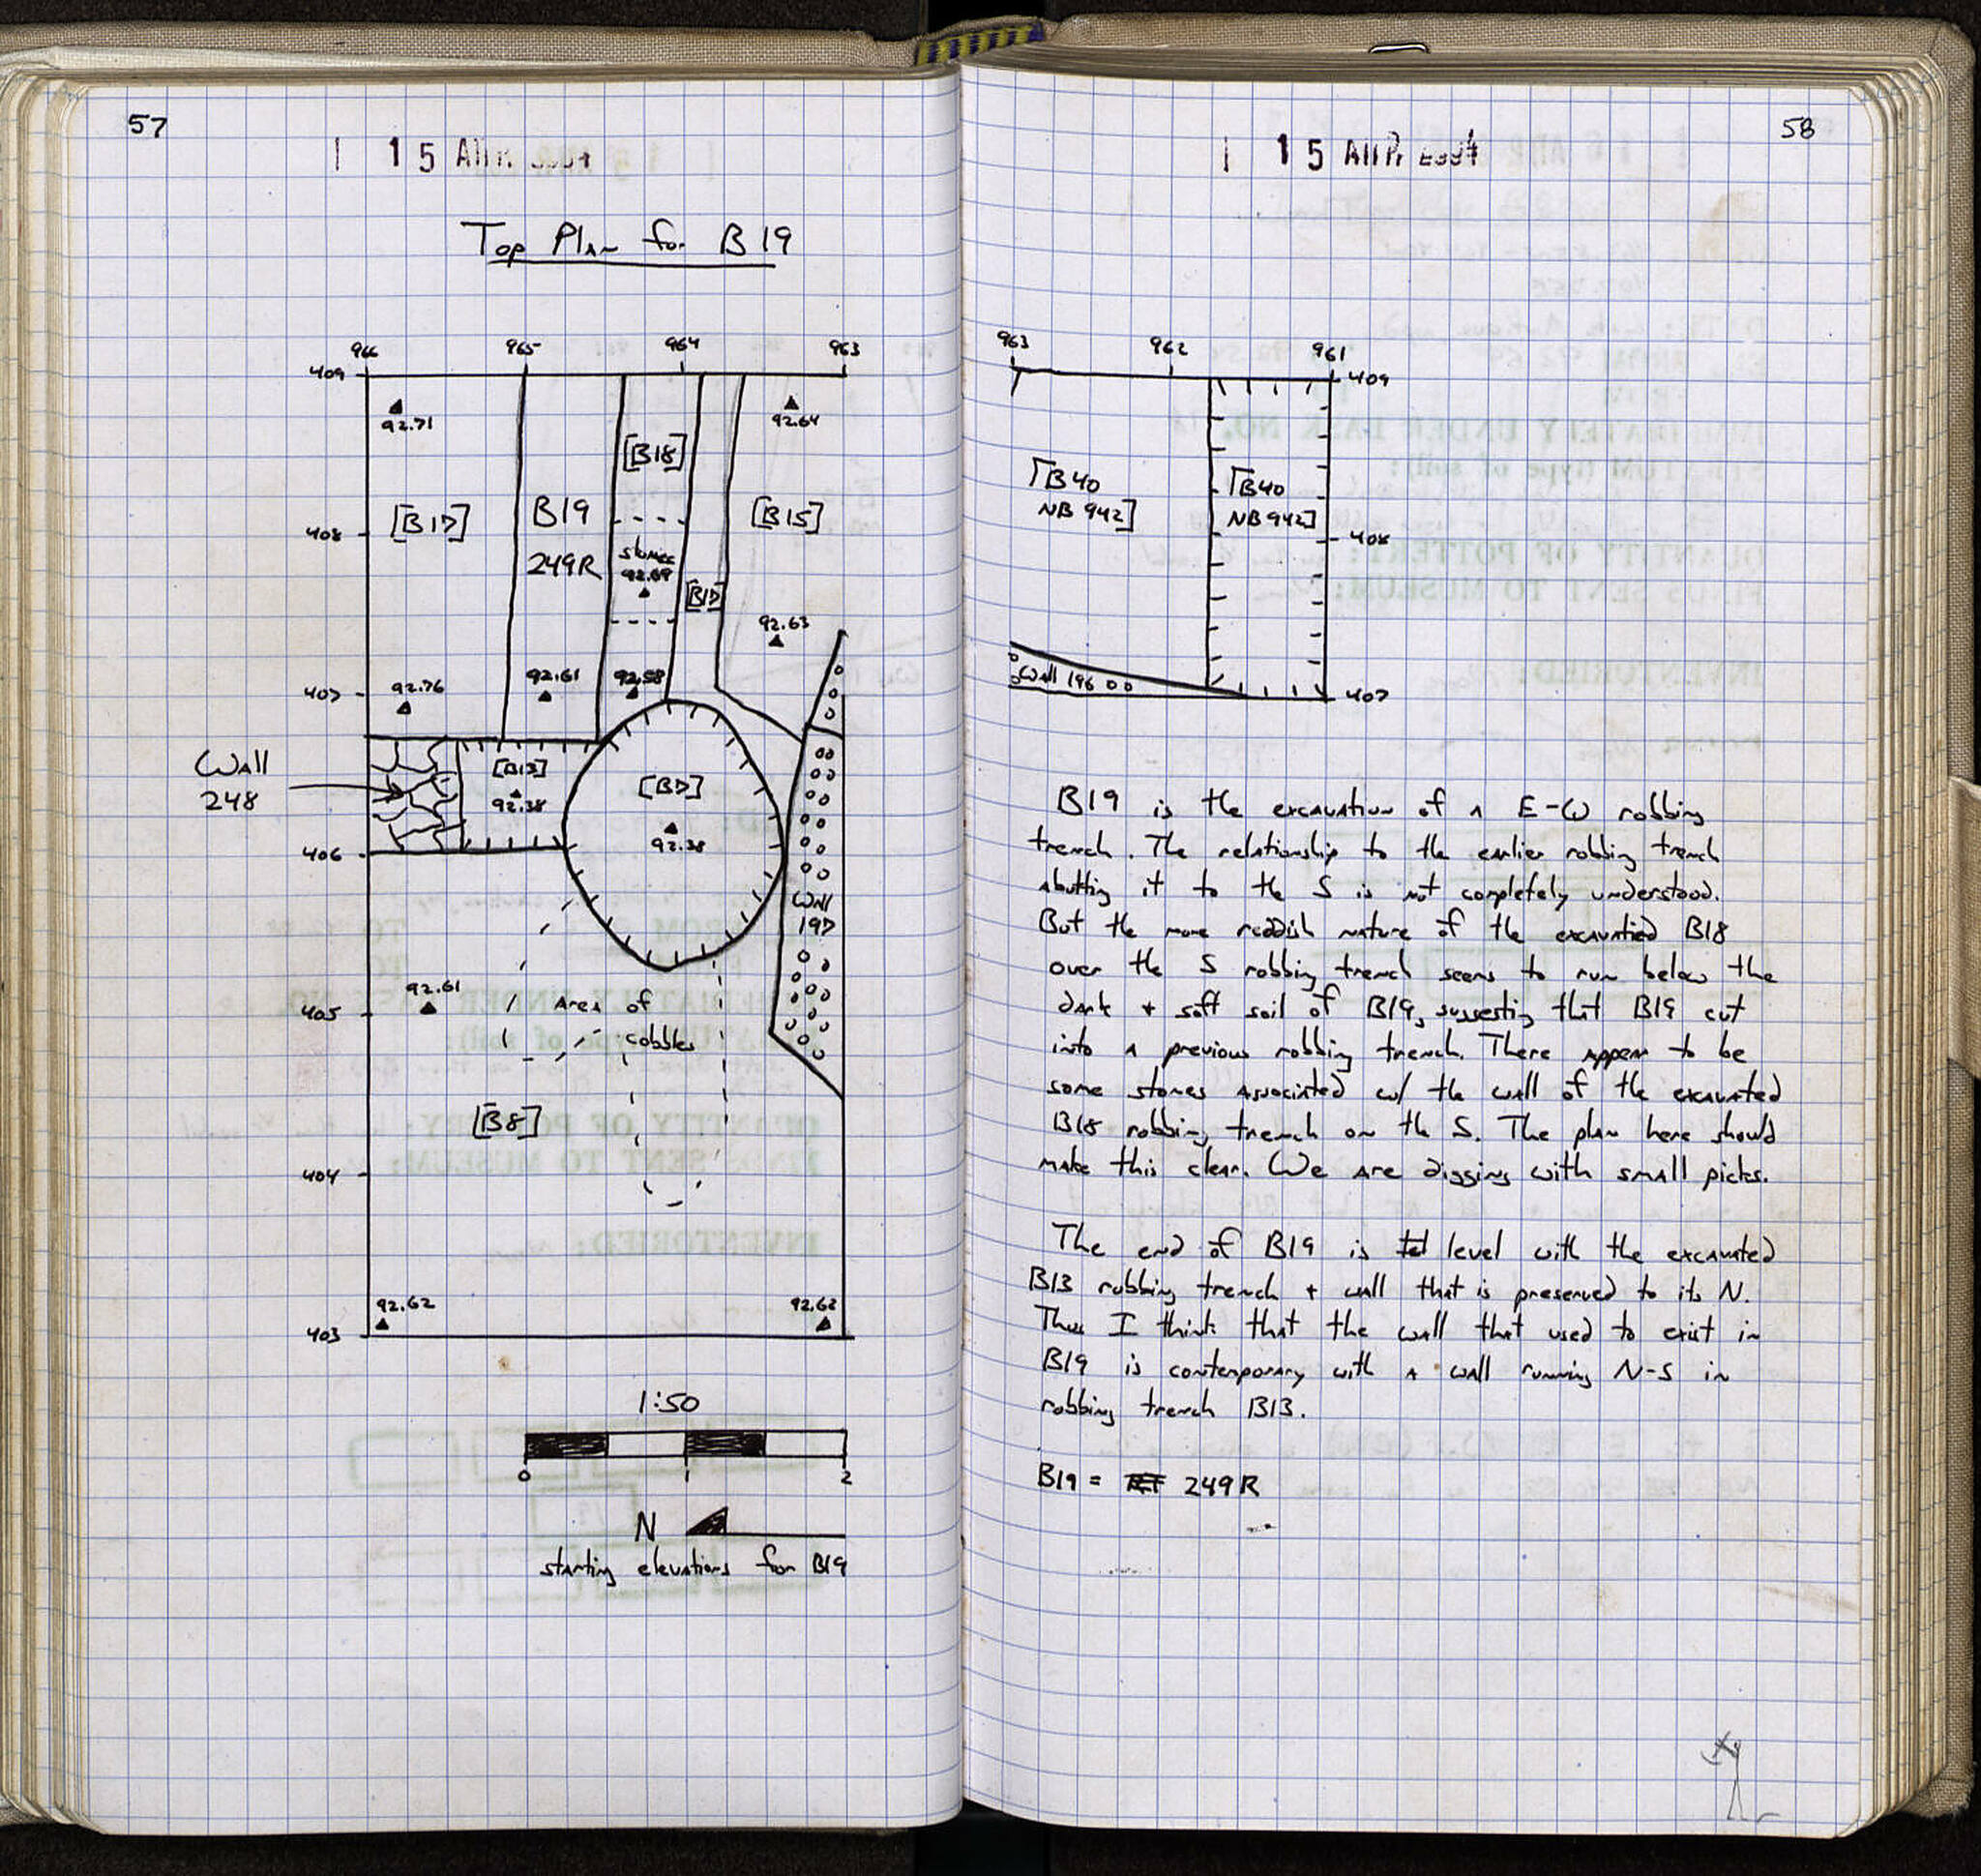 57
Top Plan for B19
966 965 964 963
409
92.71
92.64
[B18]
[B17] B19 [B15]
408
249R stones
92.69
[B17]
92.63
407 92.76 92.61 92.58
Wall
248
[B13]
92.38
[B7]
92.38
406
Wall
197
92.61
405 Area of
cobbles
[B8]
404
92.62 92.62
403
1:50
0 1 2
N
starting elevations for B19
58
15 APR
963 962 961
409
[B40
NB 942]
[B40
NB 942]
408
Wall 196
407
B19 is the excavation of a E-W robbing
trench. The relationship to the earlier robbing trench
abutting it to the S is not completely understood.
But the more reddish nature of the excavatied B18
over the S robbing trench seems to run below the
dark + soft soil of B19, suggesting that B19 cut
into a previous robbing trench. There appear to be
some stones associated w/ the wall of the excavated
B18 robbing trench on the S. The plan here should
make this clear. We are digging with small picks.
The end of B19 is level with the excavated
B13 robbing trench + wall that is preserved to its N.
Thus I think that the wall that used to exist in
B19 is contemporary with a wall running N-S in
robbing trench B13.
B19 = 249R